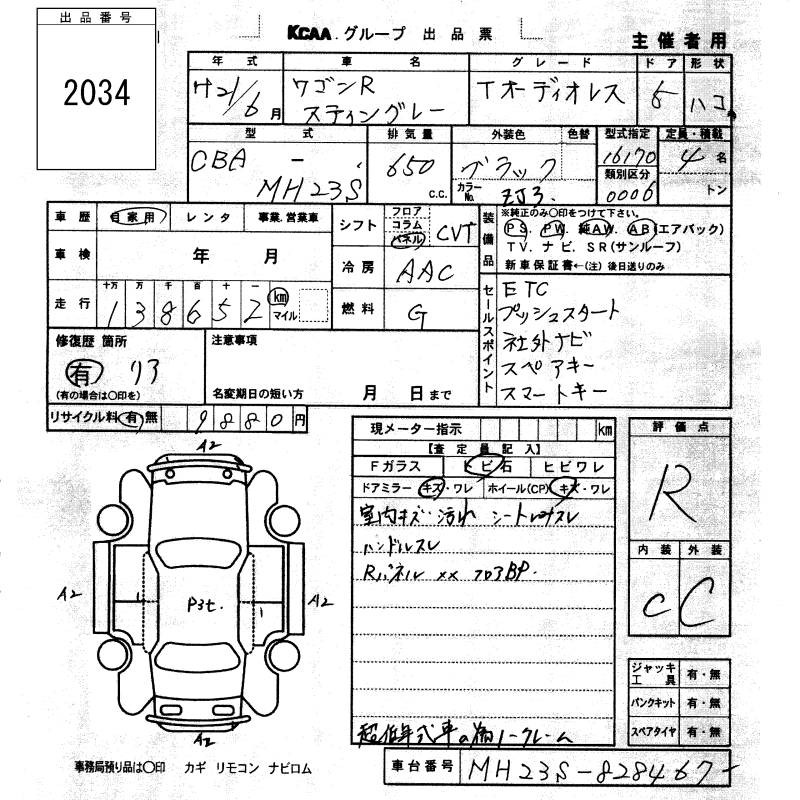 出品番号
2034
KCAA グループ 出品票
主催者用
年式 車名 グレード ドア 形状
H21/6月 ワゴンR スティングレー Tオーディオレス 5 ハコ
型式 排気量 外装色 色替 型式指定 定員・積載
CBA - MH23S 650 c.c. ブラック 16170 4名
カラーNo. ZJ3. 類別区分 0006 トン
車歴 自家用 レンタ 事業.営業車
シフト フロア コラム パネル CVT
車検 年 月
冷房 AAC
走行 十万 万 千 百 十 一
138652 km マイル
燃料 G
装備品 ※純正のみ〇印をつけて下さい。
PS. PW. 純AW. AB(エアバック)
TV. ナビ. SR(サンルーフ)
新車保証書←(注)後日送りのみ
セールスポイント
ETC
プッシュスタート
社外ナビ
スペアキー
スマートキー
修復歴 箇所
有 リア
(有の場合は〇印を)
注意事項
名変期日の短い方 月 日まで
リサイクル料 有 無 9880円
現メーター指示 km
【査定員記入】
Fガラス トビ石 ヒビワレ
ドアミラー キズ・ワレ ホイール(CP) キズ・ワレ
室内キズ・汚れ シート
ハンドルスレ
Rパネル ×× フロアBP.
超低年式車の為ノークレーム
評価点
R
内装 外装
C C
ジャッキ工具 有・無
パンクキット 有・無
スペアタイヤ 有・無
A2
A2 P3t. A2
1 1
A2
事務局預り品は〇印 カギ リモコン ナビロム
車台番号 MH23S-828467